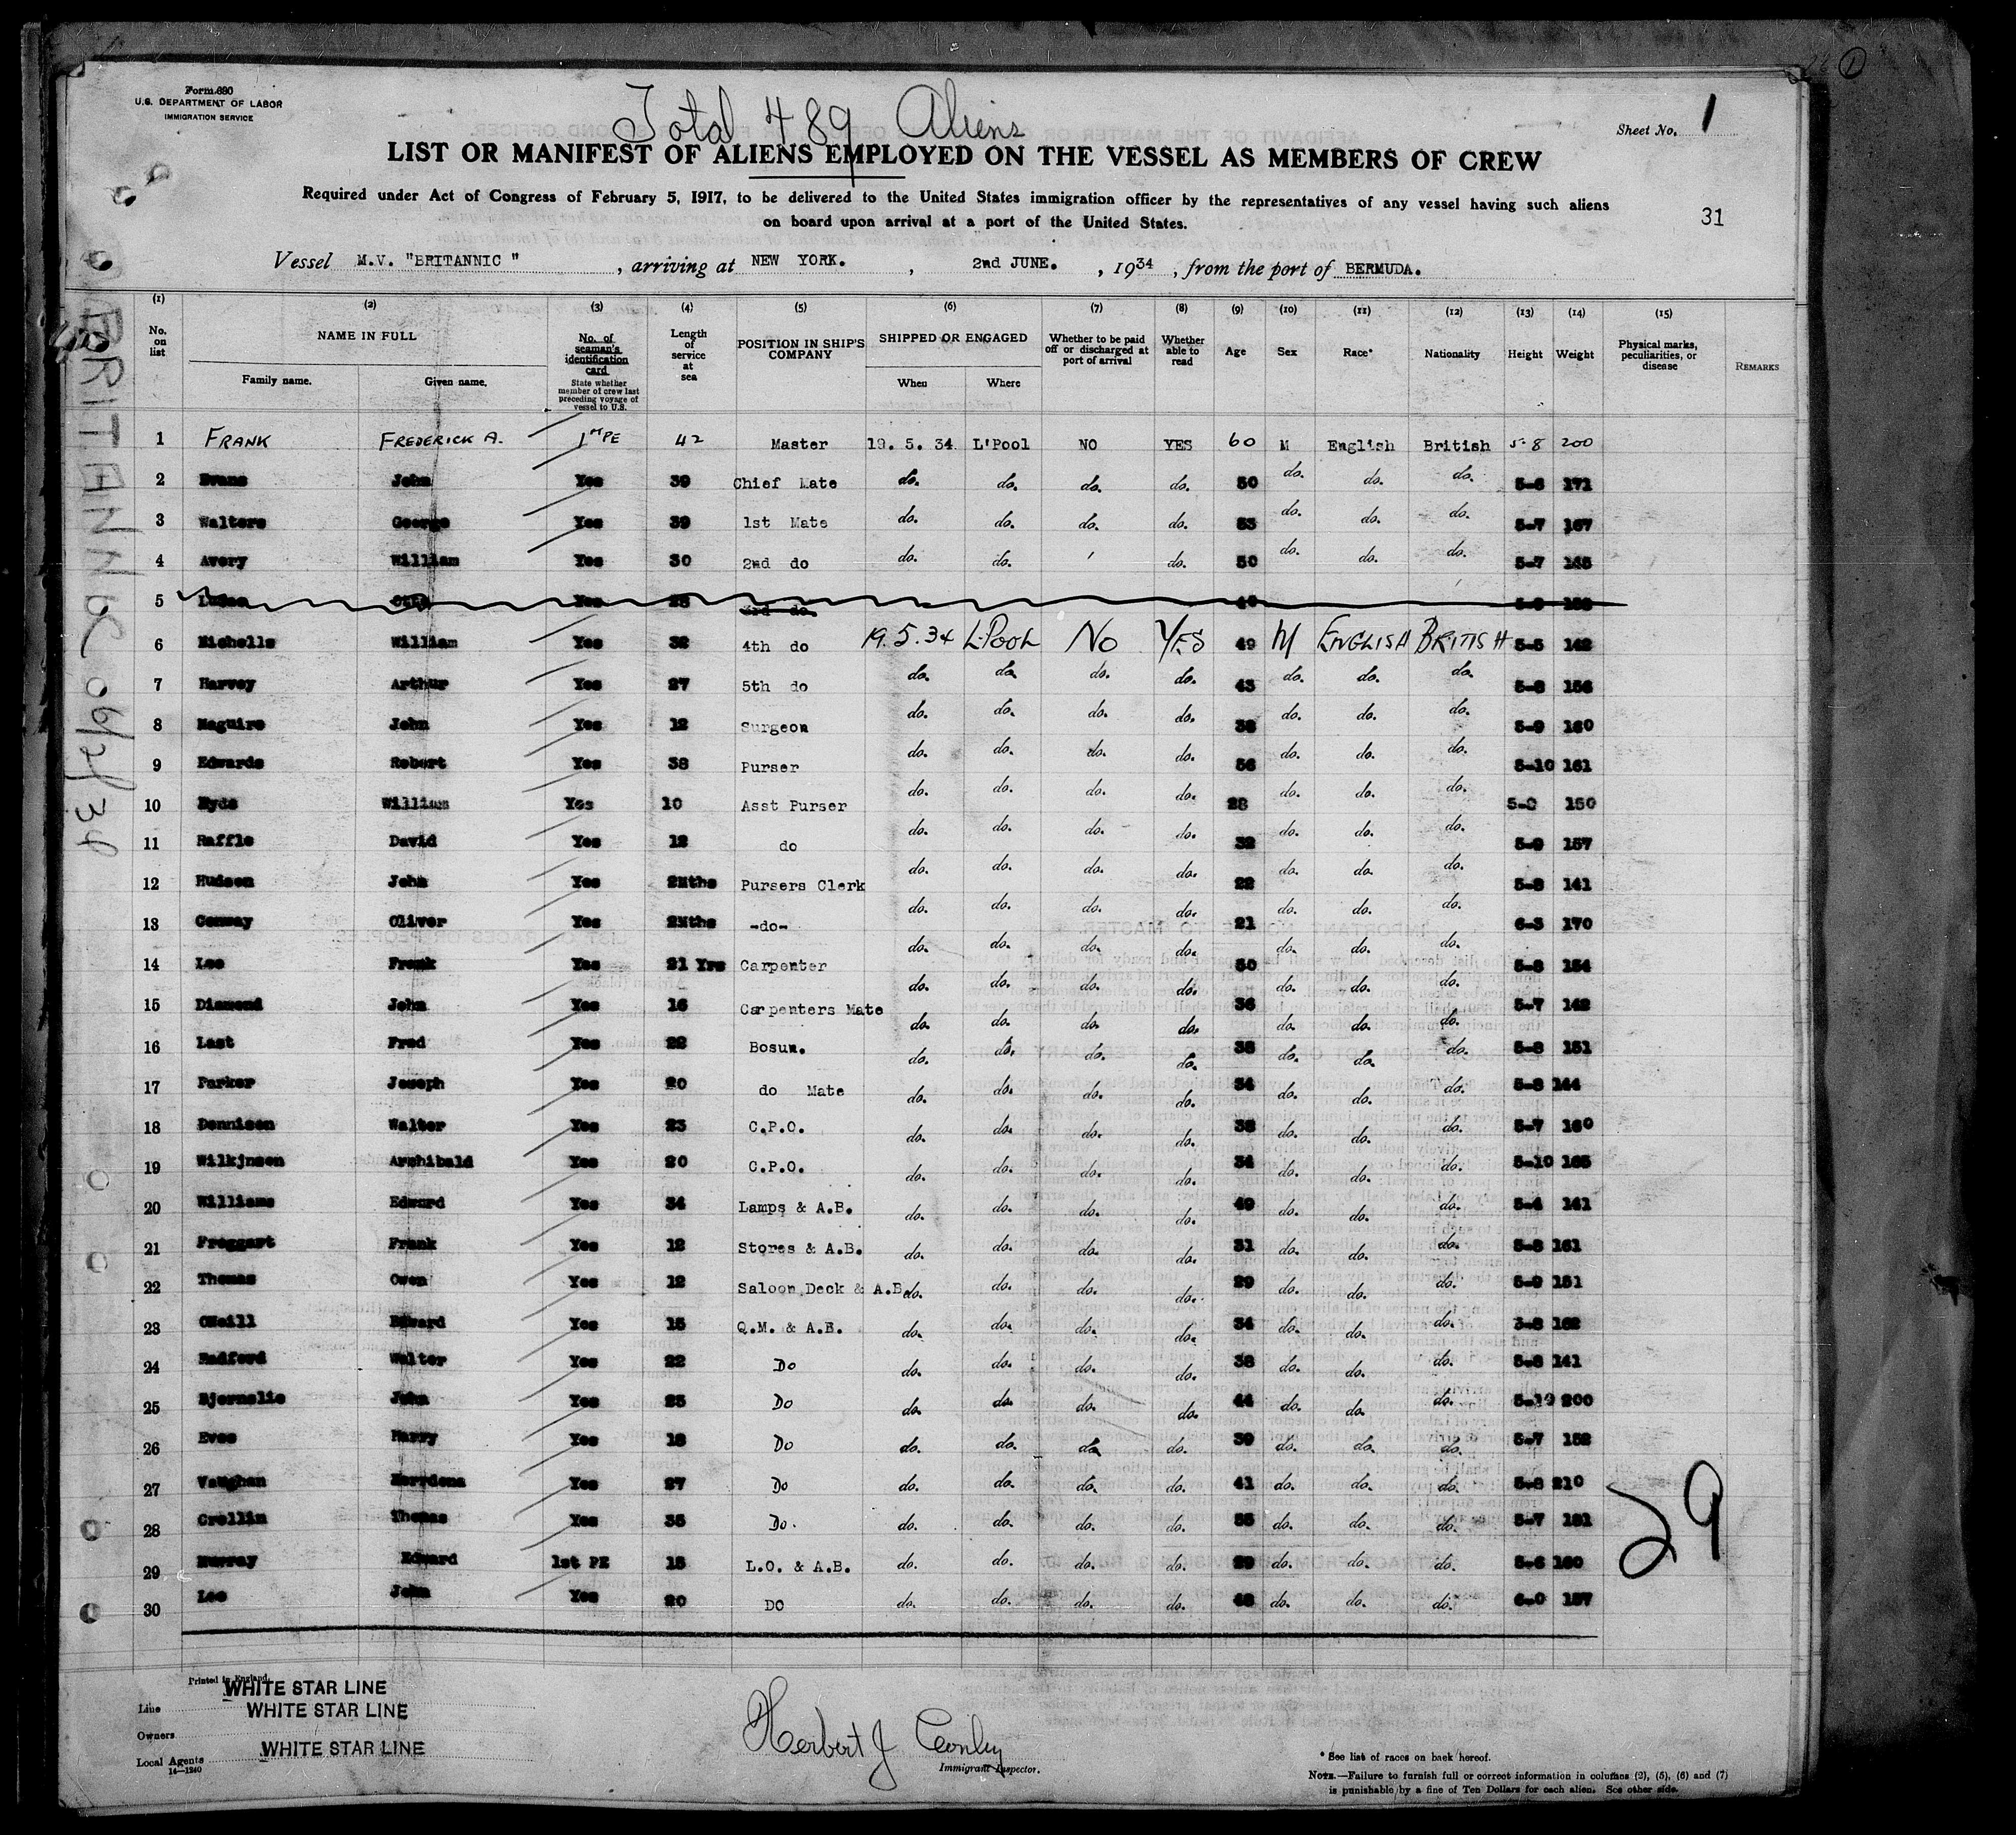 Form 680
U.S. DEPARTMENT OF LABOR
IMMIGRATION SERVICE
Total 489 Aliens
Sheet No. 1
LIST OR MANIFEST OF ALIENS EMPLOYED ON THE VESSEL AS MEMBERS OF CREW
Required under Act of Congress of February 5, 1917, to be delivered to the United States immigration officer by the representatives of any vessel having such aliens
on board upon arrival at a port of the United States.
31
Vessel M.V. "BRITANNIC", arriving at NEW YORK., 2nd JUNE., 1934, from the port of BERMUDA.
(1) (2) (3) (4) (5) (6) (7) (8) (9) (10) (11) (12) (13) (14) (15)
No. on list
NAME IN FULL
Family name. Given name.
No. of seaman's identification card
State whether member of crew last preceding voyage of vessel to U.S.
Length of service at sea
POSITION IN SHIP'S COMPANY
SHIPPED OR ENGAGED
When Where
Whether to be paid off or discharged at port of arrival
Whether able to read
Age Sex Race* Nationality Height Weight
Physical marks, peculiarities, or disease
REMARKS
1 FRANK FREDERICK A. 1st PE 42 Master 19. 5. 34. L'Pool NO YES 60 M English British 5-8 200
2 Evans John Yes 39 Chief Mate do. do. do. do. 50 do. do. do. 5-8 171
3 Walters George Yes 39 1st Mate do. do. do. do. 53 do. do. do. 5-7 167
4 Avery William Yes 30 2nd do do. do. do. 50 do. do. do. 5-7 165
5 Yes 3rd do
6 Nicholls William Yes 32 4th do 19.5.34 L'POOL NO YES 49 M ENGLISH BRITISH 5-5 142
7 Harvey Arthur Yes 27 5th do do. do. do. do. 43 do. do. do. 5-8 156
8 Maguire John Yes 12 Surgeon do. do. do. do. 38 do. do. do. 5-9 160
9 Edwards Robert Yes 38 Purser do. do. do. do. 56 do. do. do. 5-10 161
10 Hyde William Yes 10 Asst Purser do. do. do. do. 28 do. do. do. 150
11 Raffle David Yes 12 do do. do. do. do. 32 do. do. do. 5-9 157
12 Hudson John Yes 2Mths Pursers Clerk do. do. do. do. 22 do. do. do. 5-8 141
13 Conway Oliver Yes 2Mths -do- do. do. do. do. 21 do. do. do. 6-3 170
14 Lee Frank Yes 21 Yrs Carpenter do. do. do. do. 50 do. do. do. 5-8 154
15 Diamond John Yes 16 Carpenters Mate do. do. do. do. 36 do. do. do. 5-7 142
16 Last Fred Yes 22 Bosun. do. do. do. do. 38 do. do. do. 5-8 151
17 Parker Joseph Yes 20 do Mate do. do. do. do. 34 do. do. do. 5-8 144
18 Dennison Walter Yes 23 C.P.O. do. do. do. do. 38 do. do. do. 5-7 160
19 Wilkjnson Archibald Yes 20 C.P.O. do. do. do. do. 34 do. do. do. 5-10 165
20 Williams Edward Yes 34 Lamps & A.B. do. do. do. do. 49 do. do. do. 5-4 141
21 Froggart Frank Yes 12 Stores & A.B. do. do. do. do. 31 do. do. do. 5-8 161
22 Thomas Owen Yes 12 Saloon Deck & A.B. do. do. do. do. 29 do. do. do. 5-9 151
23 ONeill Edward Yes 15 Q.M. & A.B. do. do. do. do. 34 do. do. do. 162
24 Radford Walter Yes 22 Do do. do. do. do. 38 do. do. do. 5-8 141
25 Bjornelie John Yes 25 Do do. do. do. do. 44 do. do. do. 200
26 Eves Harry Yes 18 Do do. do. do. do. 39 do. do. do. 5-7 152
27 Vaughan Yes 27 Do do. do. do. do. 41 do. do. do. 5-8 210
28 Crellin Thomas Yes 35 Do. do. do. do. do. 55 do. do. do. 5-7 181
29 Murray Edward 1st PE 15 L.O. & A.B. do. do. do. do. 29 do. do. do. 5-6 160
30 Lee John Yes 20 DO do. do. do. do. 48 do. do. do. 6-0 157
29
BRITANNIC 06/2/34
Printed in England.
Line WHITE STAR LINE
Owners WHITE STAR LINE
Local Agents WHITE STAR LINE
14—1240
Herbert J Conley
Immigrant Inspector.
* See list of races on back hereof.
NOTE.—Failure to furnish full or correct information in columns (2), (5), (6) and (7)
is punishable by a fine of Ten Dollars for each alien. See other side.